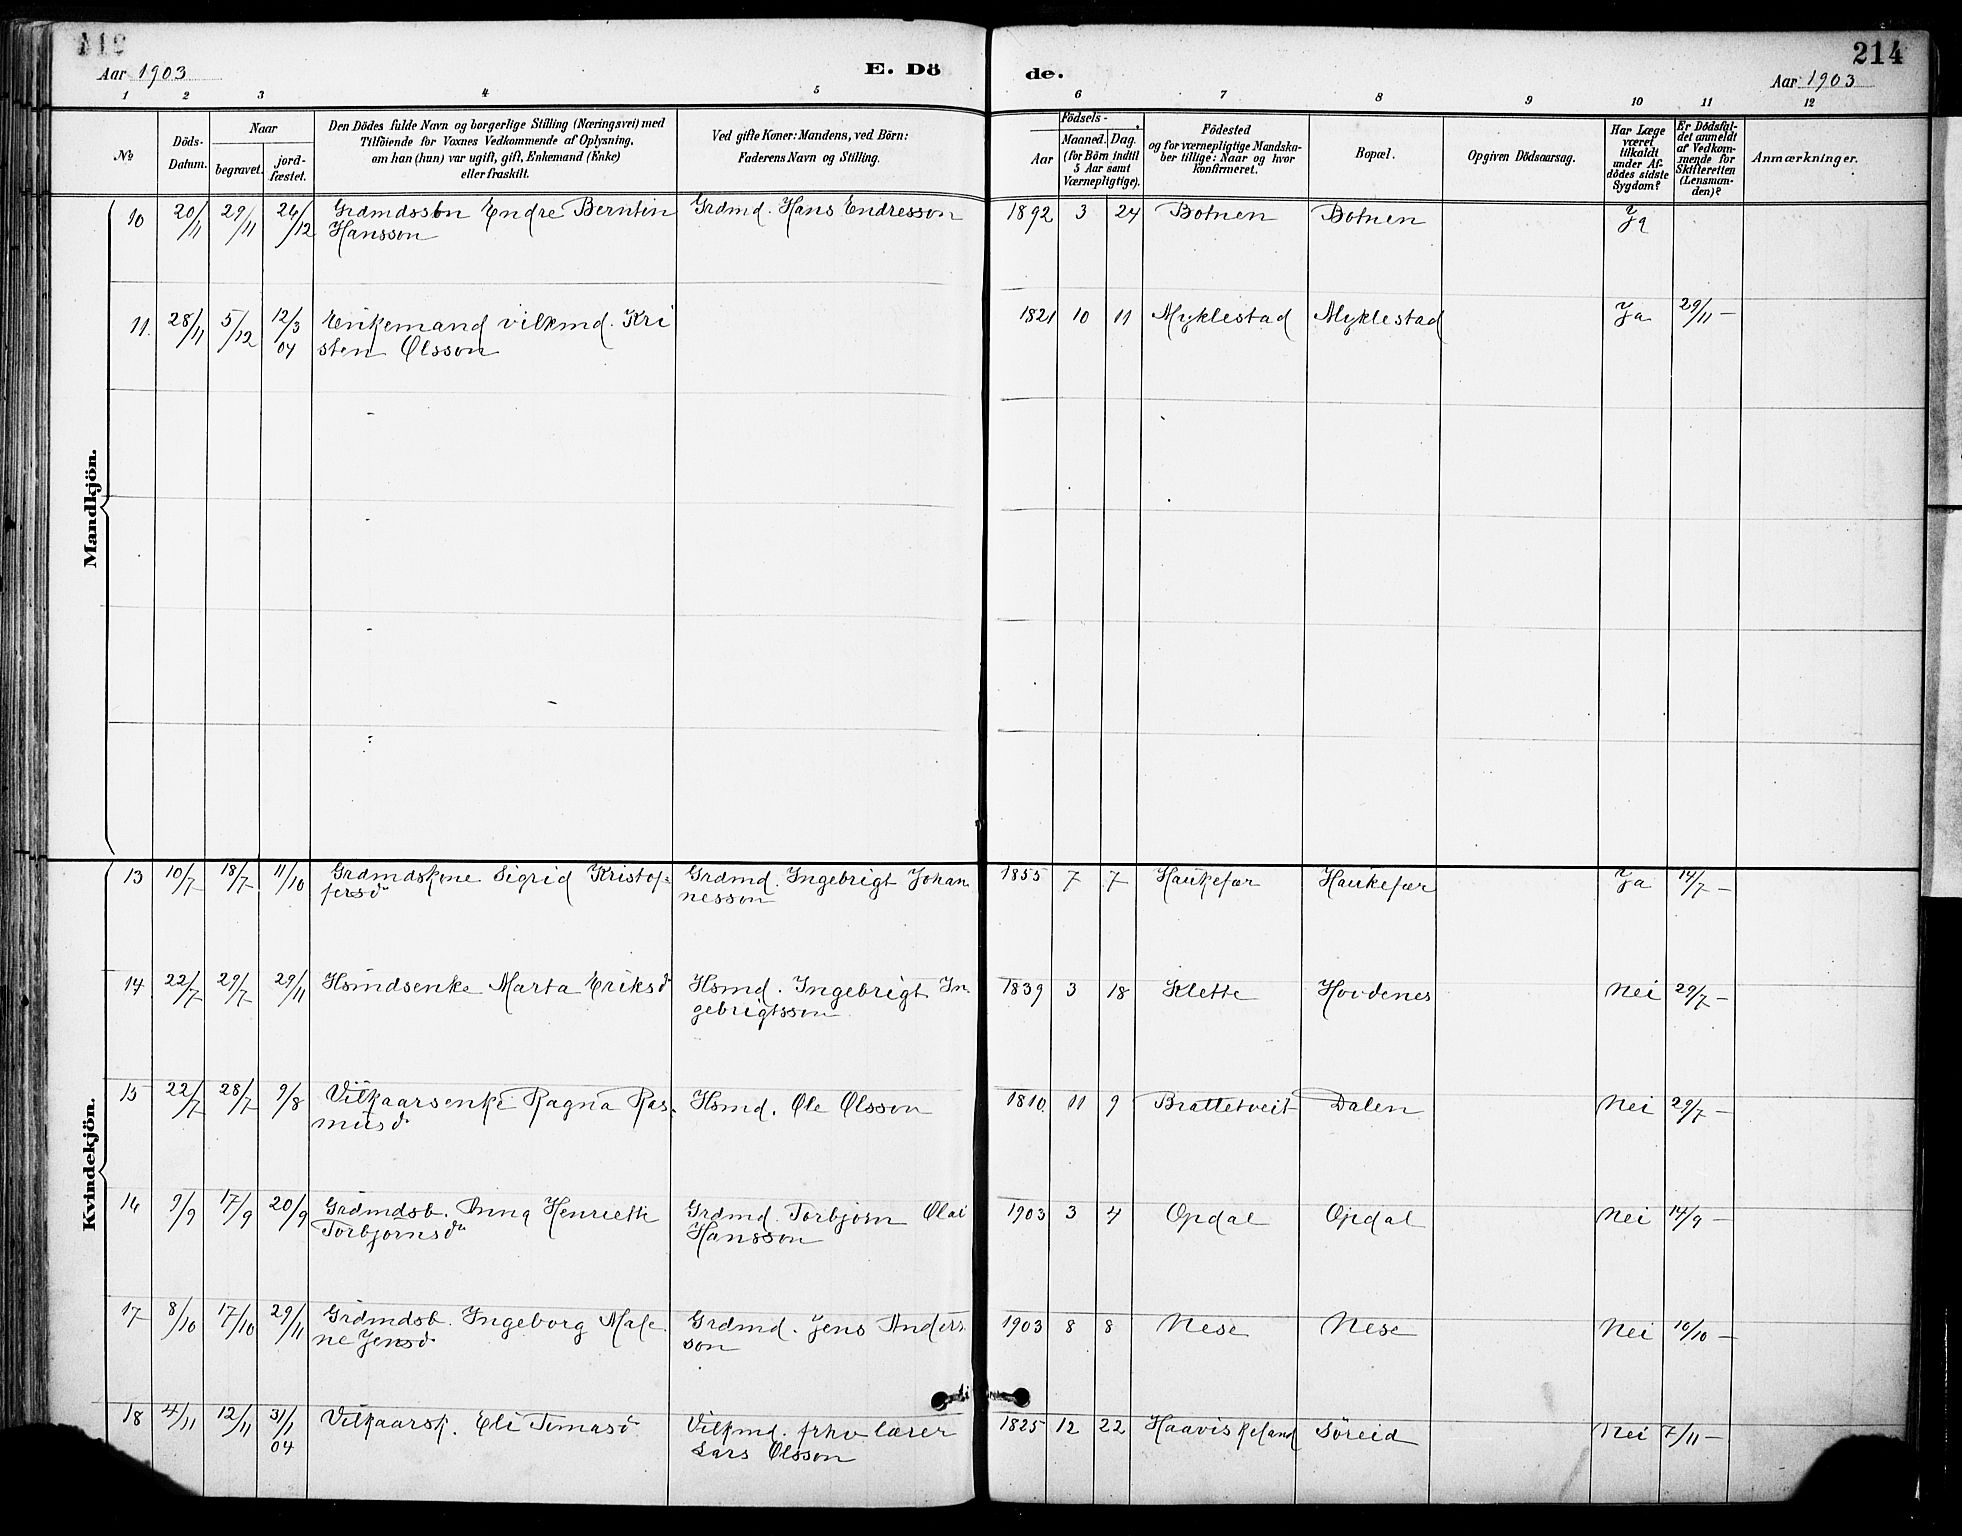 214
Aar 1903
E. Dö
de.
Aar 1903
1 2 3 4 5 6 7 8 9 10 11 12
No
Döds-
Datum.
Naar
begravet.
jord-
fæstet.
Den Dödes fulde Navn og borgerlige Stilling (Næringsvei) med
Tilföiende for Voxnes Vedkommende af Oplysning,
om han (hun) var ugift, gift, Enkemand (Enke)
eller fraskilt.
Ved gifte Koner: Mandens, ved Börn:
Faderens Navn og Stilling.
Födsels-
Aar
Maaned. Dag.
(for Börn indtil
5 Aar samt
Værnepligtige).
Födested
og for værnepligtige Mandska-
ber tillige: Naar og hvor
konfirmeret.
Bopæl.
Opgiven Dödsaarsag.
Har Læge
været
tilkaldt
under Af-
dödes sidste
Sygdom?
Er Dödsfal-
det anmeldt
af Vedkom-
mende for
Skifteretten
(Lensman-
den)?
Anmærkninger.
Mandkjön.
10 20/11 29/11 26/12 Grdmdssøn Endre Berntin Grdmd. Hans Endresson 1892 3 24 Botnen Botnen Ja
Hansson
11. 28/11 5/12 12/3 Enkemand vilkmd. Kri 1821 10 11 Myklestad Myklestad Ja 29/11 —
04 sten Olsson
Kvindekjön.
13 10/7 18/7 11/10 Grdmdskone Sigrid Kristof- Grdmd. Ingebrigt Johan 1855 7 7 Haukefær Haukefær Ja 14/7 —
fersd nesson
14 22/7 29/7 29/11 Hsmdsenke Marta Eriksd Hsmd. Ingebrigt In 1839 3 18 Klette Hovdenes Nei 29/7 —
gebrigtsson
15 22/7 28/7 9/8 Vilkaarsenke Ragna Ras- Hsmd. Ole Olsson 1810 11 9 Brattetveit Dalen Nei 29/7 —
musd
16 9/9 17/9 20/9 Grdmdsb. Anna Henriette Grdmd. Torbjorn Olai 1903 3 4 Opdal Opdal Nei 14/9 —
Torbjornsd Hansson
17 8/10 17/10 29/11 Grdmdsb. Ingeborg Male Grdmd. Jens Anders 1903 8 8 Nese Nese Nei 10/10 —
ne Jensd son
18 4/11 12/11 31/1 Vilkaarsk. Eli Tomasd Vilkmd. frhv lærer 1825 12 22 Haaviskeland Søreid Nei 7/11 —
04 Lars Olsson